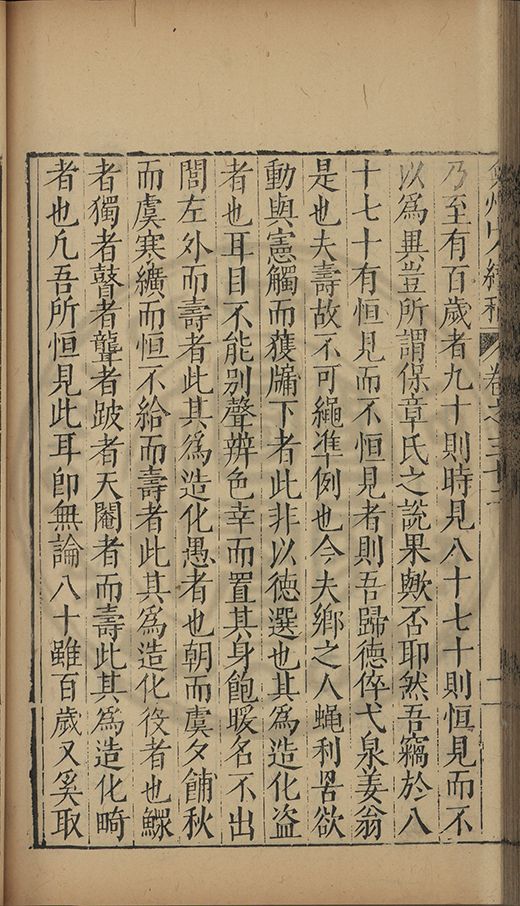 弇州山人續稿 卷之三十
乃至有百歲者九十則時見八十七十則恒見而不
以爲異豈所謂保章氏之説果歟否耶然吾竊於八
十七十有恒見而不恒見者則吾歸徳倅弋泉姜翁
是也夫壽故不可繩準例也今夫鄉之人蠅利罟欲
動與憲觸而獲牖下者此非以徳選也其爲造化盗
者也耳目不能别聲辨色幸而置其身飽暖名不出
閭左外而壽者此其爲造化愚者也朝而虞夕餔秋
而虞寒纊而恒不給而壽者此其爲造化役者也鰥
者獨者瞽者聾者跛者天閹者而壽此其爲造化畸
者也凢吾所恒見此耳卽無論八十雖百歲又奚取